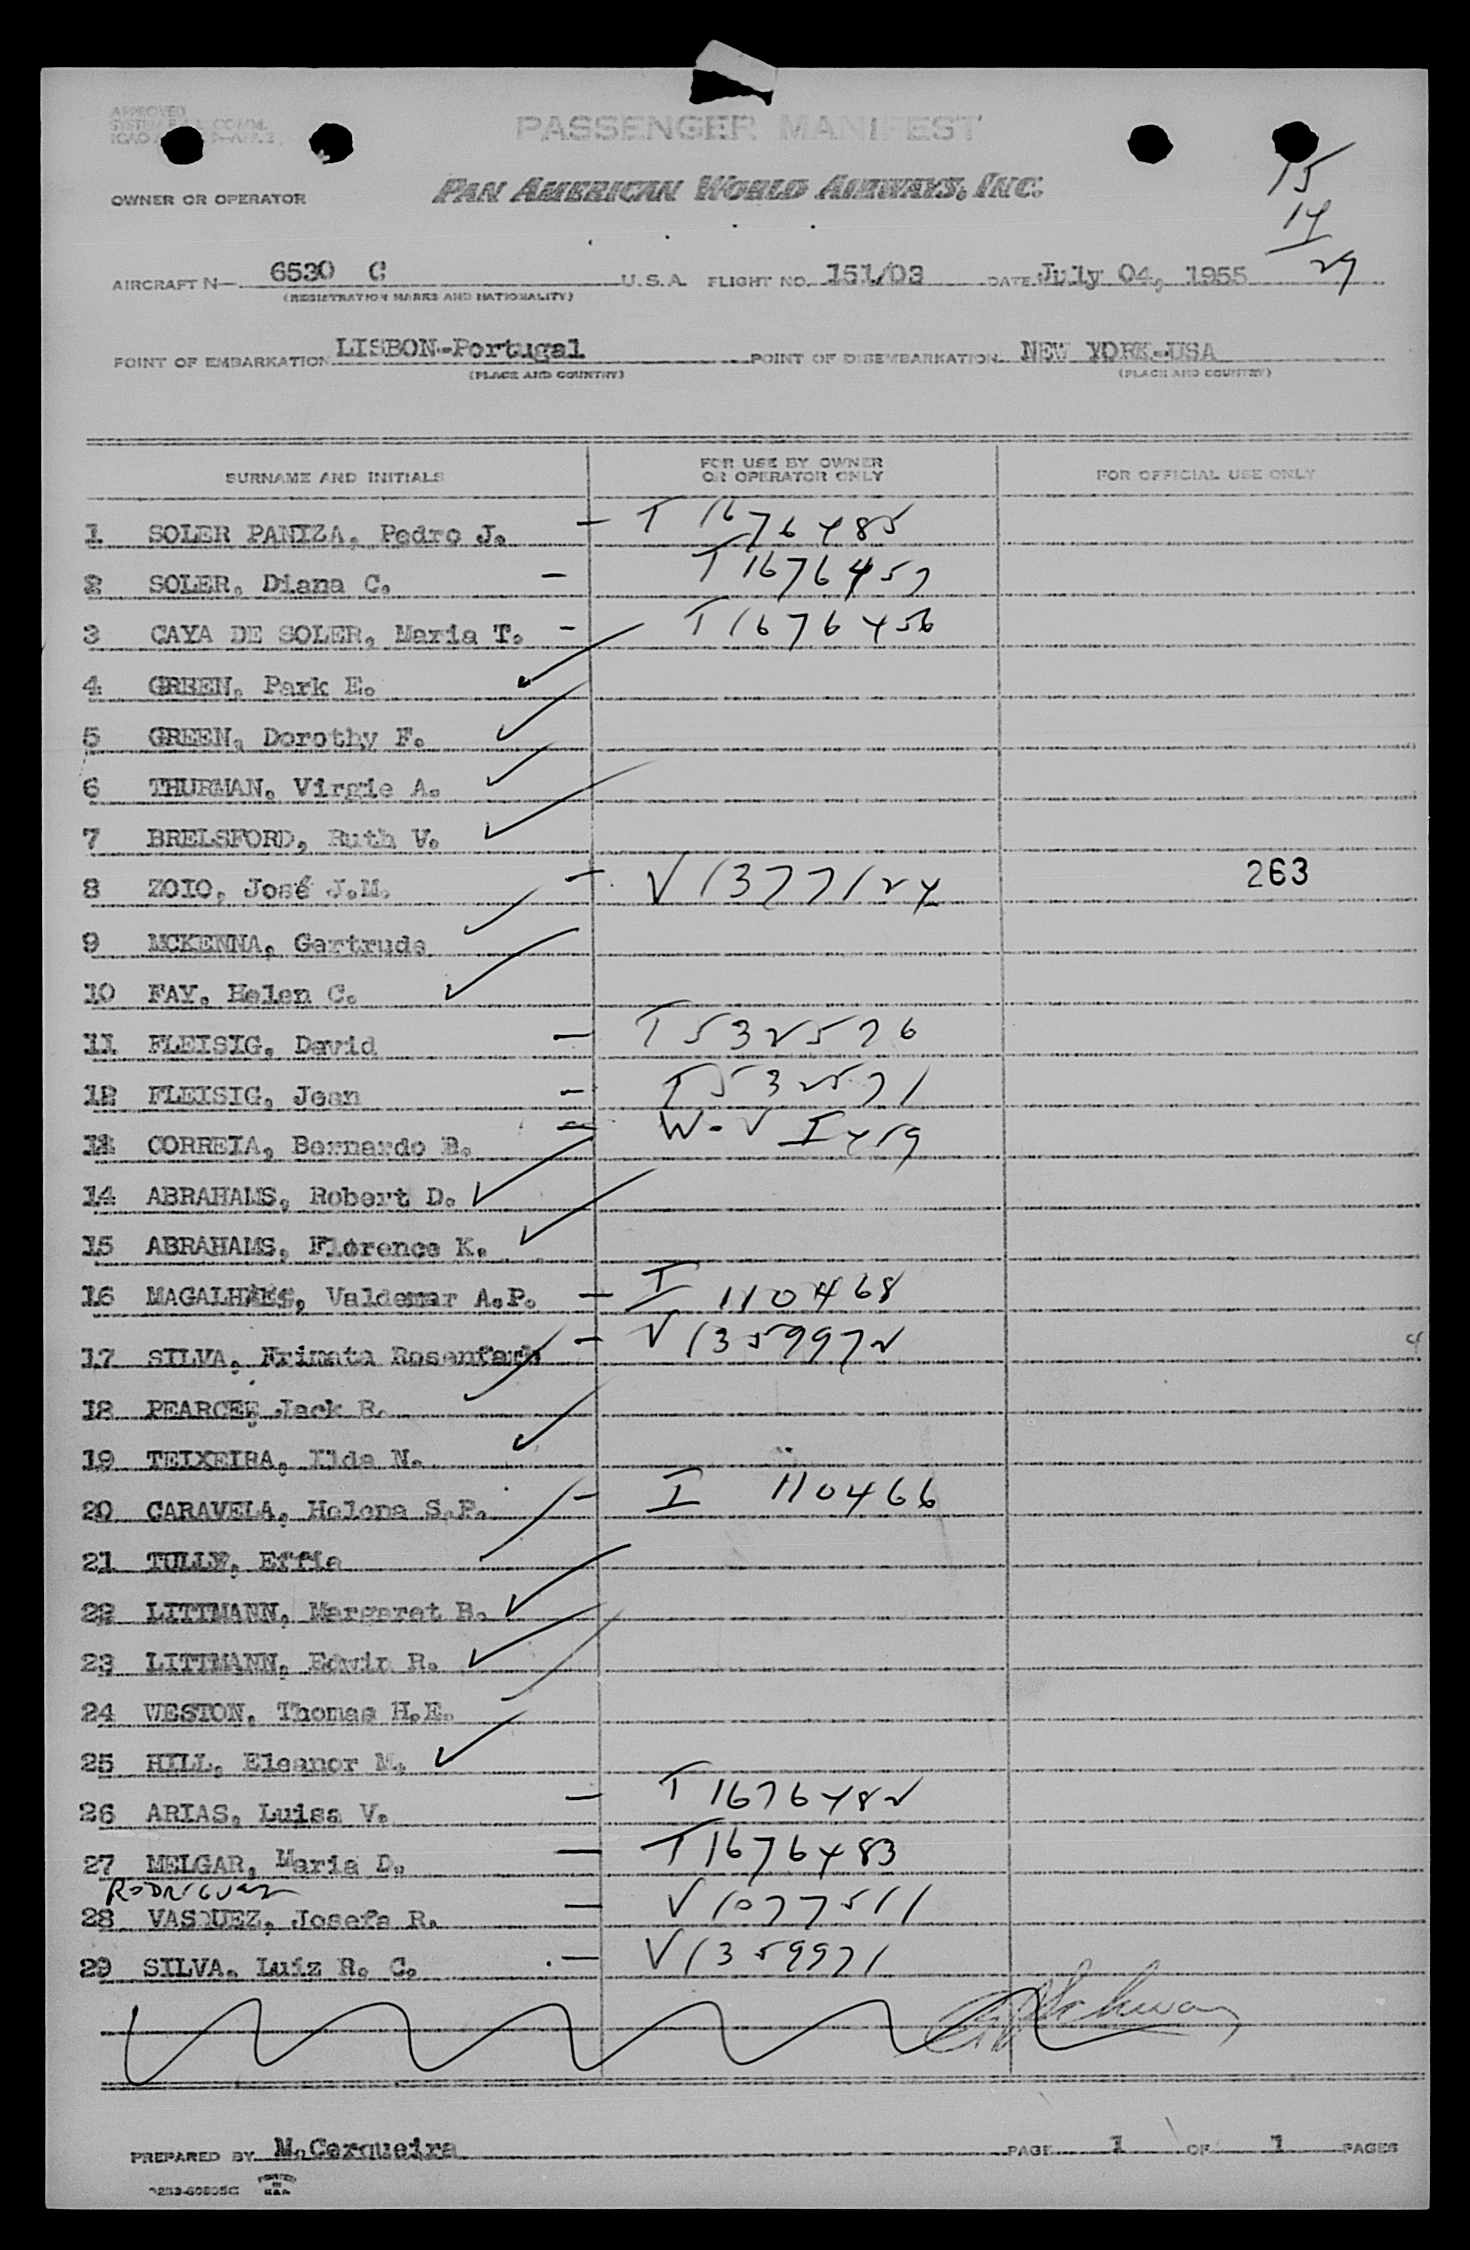 APPROVED
PASSENGER MANIFEST
OWNER OR OPERATOR PAN AMERICAN WORLD AIRWAYS, INC.
15
14
29
AIRCRAFT N- 6530 C U.S.A. FLIGHT NO. 151/03 DATE July 04, 1955
(REGISTRATION MARKS AND NATIONALITY)
POINT OF EMBARKATION LISBON-Portugal POINT OF DISEMBARKATION NEW YORK-USA
(PLACE AND COUNTRY) (PLACE AND COUNTRY)
SURNAME AND INITIALS FOR USE BY OWNER OR OPERATOR ONLY FOR OFFICIAL USE ONLY
1 SOLER PANIZA, Pedro J. - T 1676485
2 SOLER, Diana C. - T1676457
3 CAYA DE SOLER, Maria T. - T1676456
4 GREEN, Park E. ✓
5 GREEN, Dorothy F. ✓
6 THURMAN, Virgie A. ✓
7 BRELSFORD, Ruth V. ✓
8 ZOIO, José J.M. - V1377124 263
9 MCKENNA, Gertrude ✓
10 FAY, Helen C. ✓
11 FLEISIG, David - T532576
12 FLEISIG, Jean - T532571
13 CORREIA, Bernardo B. - W-V I419
14 ABRAHAMS, Robert D. ✓
15 ABRAHAMS, Florence K. ✓
16 MAGALHAES, Valdemar A.P. - I 110468
17 SILVA, Frimata Rosenfarb - V1359972
18 PEARCE, Jack R. ✓
19 TEIXEIRA, Ilda N. ✓
20 CARAVELA, Helena S.P. - I 110466
21 TULLY, Effie ✓
22 LITTMANN, Margaret B. ✓
23 LITTMANN, Edwin R. ✓
24 WESTON, Thomas H.E. ✓
25 HILL, Eleanor M. ✓
26 ARIAS, Luisa V. - T1676482
27 MELGAR, Maria D. - T1676483
RODRIGUEZ
28 VASQUEZ, Josefa R. - V1077511
29 SILVA, Luiz R. C. - V1359971
PREPARED BY M.Cerqueira PAGE 1 OF 1 PAGES
PRINTED IN U.S.A.